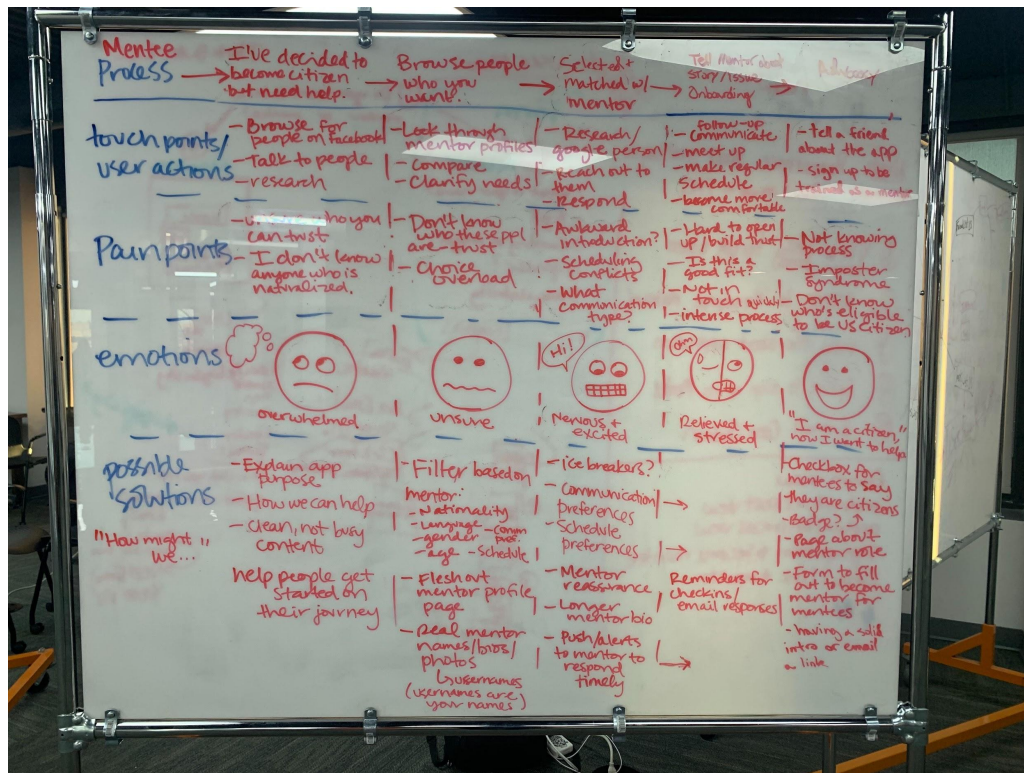 Mentee
Process
I've decided to
become citizen
but need help.
Browse people
who you
want.
Selected +
matched w/
mentor
Tell mentor about
story/issue
Onboarding
Advocacy
touch points/
user actions
- Browse for
people on facebook
- Talk to people
- research
- Look through
mentor profiles
- Compare
- Clarify needs
- Research/
google person
- Reach out to
them
- Respond
follow-up
- communicate
- meet up
- make regular
schedule
- become more
comfortable
- tell a friend
about the app
- sign up to be
trained as a mentor
Pain points
who you
can trust
- I don't know
anyone who is
naturalized.
- Don't know
who these ppl
are - trust
- Choice
overload
- Awkward
introduction?
- Scheduling
conflicts
- What
communication
type?
- Hard to open
up/build trust
- Is this a
good fit?
- Not in
touch quickly
- intense process
- Not knowing
process
- Imposter
Syndrome
- Don't know
who's eligible
to be US citizen
emotions
overwhelmed
unsure
Hi!
Nervous +
excited
Relieved +
stressed
"I am a citizen,"
now I want to help
possible
solutions
"How might
we..."
- Explain app
purpose
- How we can help
- clean, not busy
content
help people get
started on
their journey
- Filter based on
mentor:
- Nationality
- Language - comm pref.
- gender
- age - schedule
- Flesh out
mentor profile
page
- Real mentor
names/bios/
photos
↳ usernames
(usernames are
your names)
- ice breakers?
- Communication
preferences
- Schedule
preferences
- Mentor
reassurance
- Longer
mentor bio
- Push/alerts
to mentor to
respond
timely
Reminders for
checkins/
email responses
- Checkbox for
mentees to say
they are citizens
- Badge?
- Page about
mentor role
- Form to fill
out to become
mentor for
mentees
- having a solid
intro or email
a link